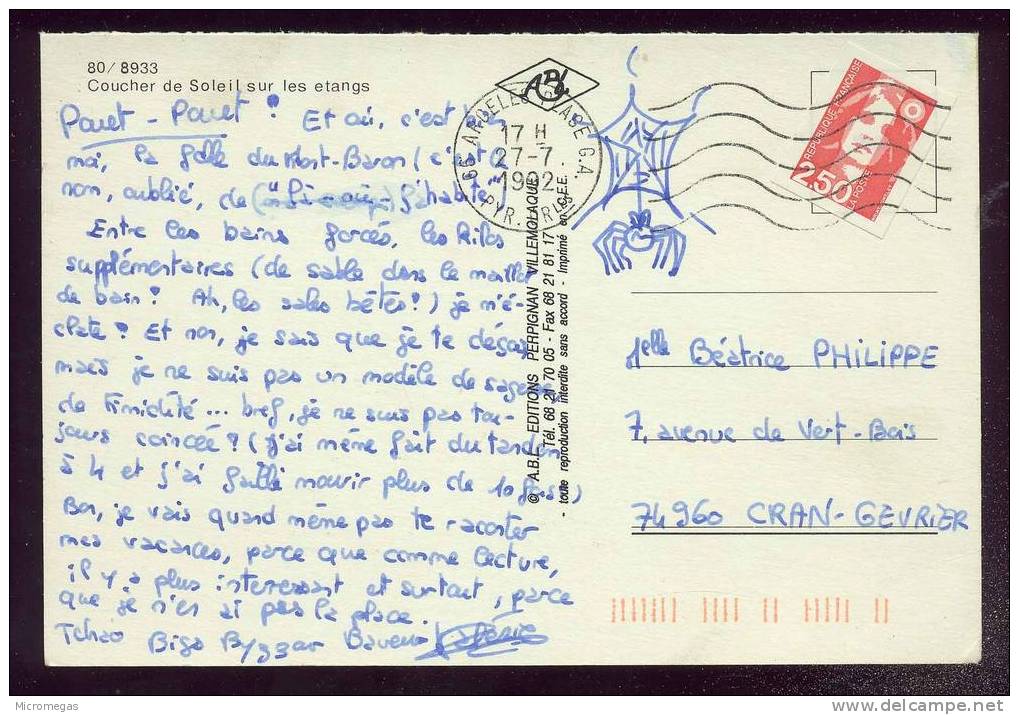 80/ 8933
Coucher de Soleil sur les etangs
Pouet - Pouet ! Et oui, c'est
moi, la folle du Mont-Baron (c'est
non, oublié, de là-où j'habite
Entre les bains forcés, les kilos
supplémentaires (de sable dans le maillot
de bain ! Ah, les sales bêtes !) je m'é-
clate ! Et non, je sais que je te déçois
mais je ne suis pas un modèle de sagesse,
de timidité... bref, je ne suis pas tou-
jours coincée ! (j'ai même fait du tandem
à 4 et j'ai failli mourir plus de 10 fois !)
Bon, je vais quand même pas te raconter
mes vacances, parce que comme lecture,
il y a plus interessant et surtout, parce
que je n'en ai pas la place.
Tchao Biga Byzzar Baveux Valérie
© A.B.L. EDITIONS PERPIGNAN VILLEMOLAQUE
Tél. 68 21 70 05 - Fax 68 21 81 17
- toute reproduction interdite sans accord - Imprimé en C.E.E.
ABL
66 ARGELES PLAGE G.A.
17 H
27-7
1992
PYR. ORIENT.
REPUBLIQUE FRANÇAISE
2,50
LA POSTE
Melle Béatrice PHILIPPE
7, avenue de Vert-Bois
74960 CRAN-GEVRIER
Micromegas
delcampe.net